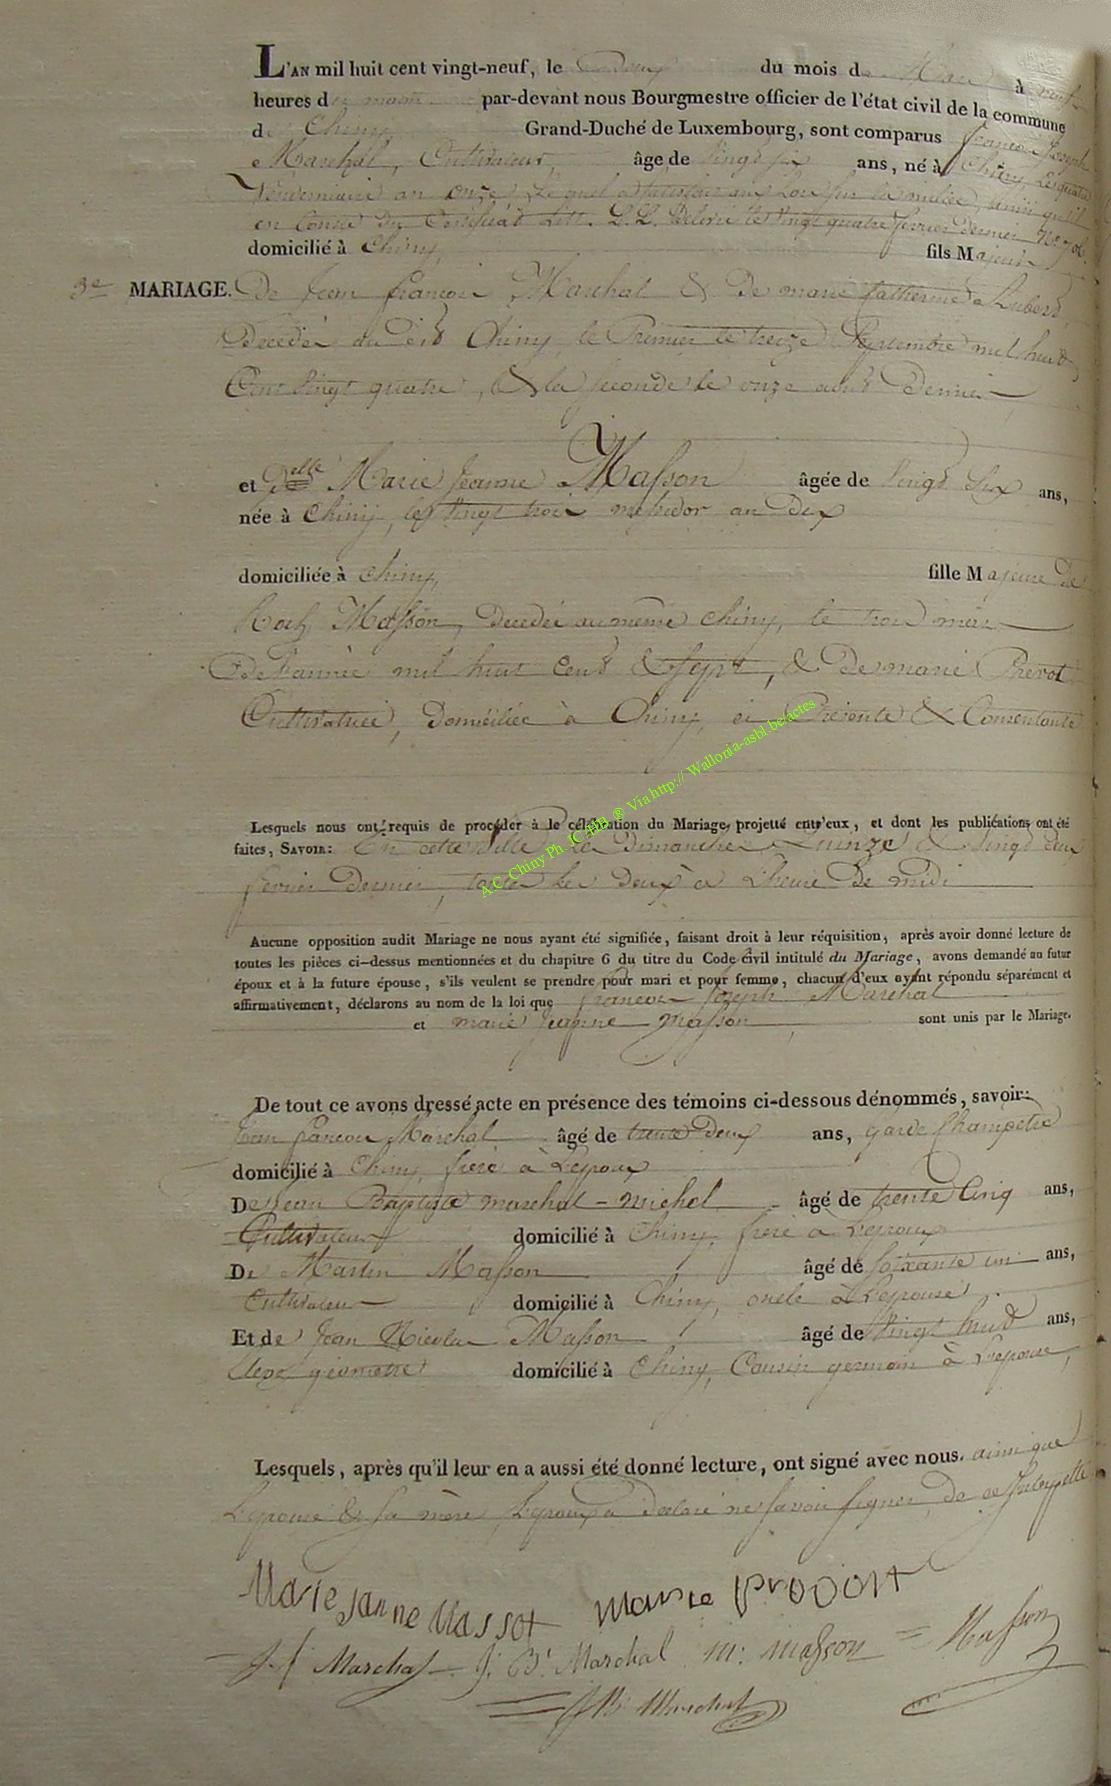 L'AN mil huit cent vingt-neuf, le Deux du mois de Mars à neuf
heures du matin par-devant nous Bourgmestre officier de l'état civil de la commune
de Chiny Grand-Duché de Luxembourg, sont comparus françois Joseph
Marchal, Cultivateur, âge de vingt six ans, né à Chiny, le quatre
Vendemiaire an onze, Lequel a satisfait aux Lois sur la milice, ainsi qu'il
en Conste du Certificat Litt. L.L. Delivré le vingt quatre fevrier dernier
domicilié à Chiny, fils Majeur
3e MARIAGE. De Jean françois Marchal & De marie Catherine Lubert,
Decedés au dit Chiny, le Premier le treize Septembre mil huit
Cent Vingt quatre, & la seconde le onze aout Dernier
et Delle Marie Jeanne Masson âgée de Vingt Six ans,
née à Chiny, le Vingt trois messidor an Dix
domiciliée à Chiny, fille Majeure De
Roch Masson, Decedé au même Chiny, le trois mai
De L'année mil huit Cent & sept, & De marie Prevot
Cultivatrice, Domiciliée à Chiny, ici Présente & Consentante
Lesquels nous ont requis de procéder à le célébration du Mariage projetté entr'eux, et dont les publications ont été
faites, SAVOIR: En cette Ville le Dimanche Quinze & Vingt deux
fevrier Dernier, toutes les Deux à L'heure De midi
A.C. Chiny Ph. JC HB ® Via http:// Wallonia-asbl.be/actes
Aucune opposition audit Mariage ne nous ayant été signifiée, faisant droit à leur réquisition, après avoir donné lecture de
toutes les pièces ci-dessus mentionnées et du chapitre 6 du titre du Code civil intitulé du Mariage, avons demandé au futur
époux et à la future épouse, s'ils veulent se prendre pour mari et pour femme, chacun d'eux ayant répondu séparément et
affirmativement, déclarons au nom de la loi que françois Joseph Marchal
et marie Jeanne Masson, sont unis par le Mariage.
De tout ce avons dressé acte en présence des témoins ci-dessous dénommés, savoir:
Jean françois Marchal âgé de trente Deux ans, garde Champetre
domicilié à Chiny, frere à L'epoux
De Jean Baptiste marchal - michel âgé de trente Cinq ans,
Cultivateur domicilié à Chiny, frere a L'epoux
De Martin Masson âgé de soixante un ans,
Cultivateur domicilié à Chiny, oncle à L'epouse
Et de Jean Nicolas Masson âgé de Vingt huit ans,
géometre domicilié à Chiny, Cousin germain à L'epouse,
Lesquels, après qu'il leur en a aussi été donné lecture, ont signé avec nous. ainsi que
L'epouse & sa mère, L'epoux a déclaré ne savoir signer, de ce Interpellé
Marie Janne Massot Marie Provott
J. f Marchal J: Bt Marchal m: masson Masson
JB Marchal